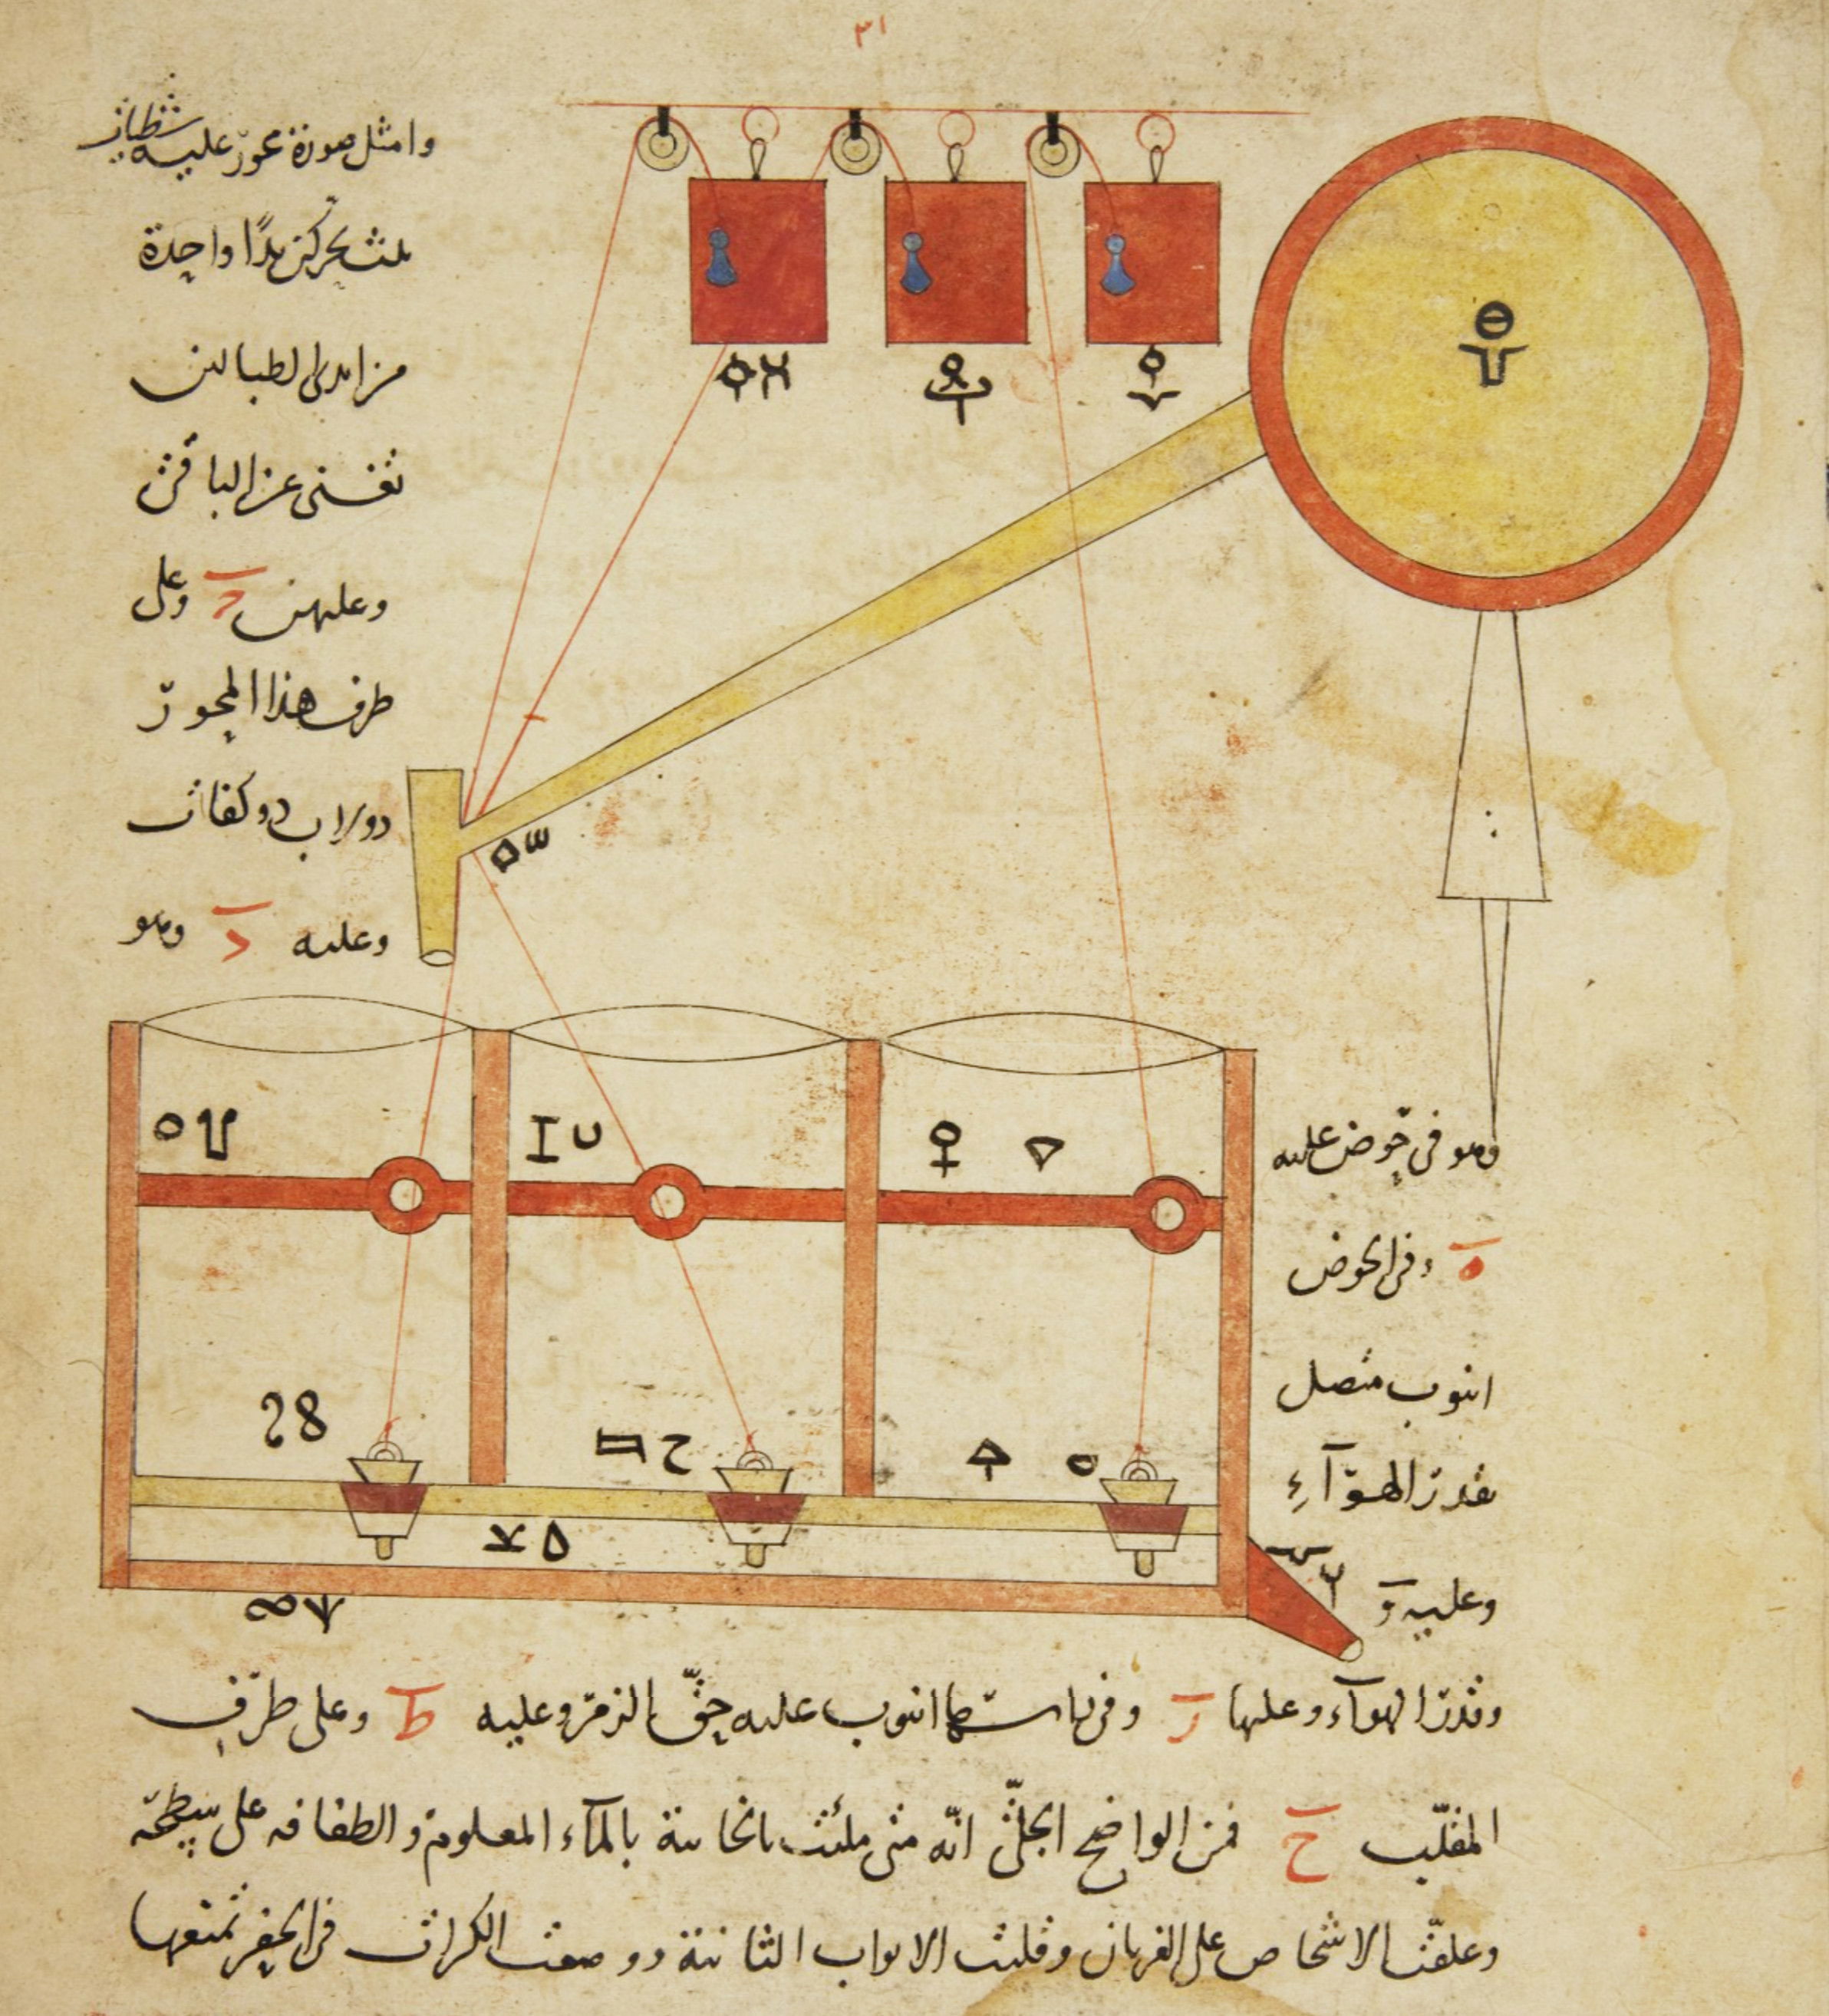 ٣١
وامثل صورة محور عليه شظيات
ثلث يحركن يدًا واحدة
من ايدي الطبالين
تغني عن الباقين
وعليهن ج وعلى
طرف هذا المحور
دولاب ذو كفات
وعليه د وهو
وهو في حوض عليه
ه وفي الحوض
انبوب متصل
بقدر الهوآء
وعليه و
وقدر الهوآء وعليها ز وفي راسها انبوب عليه حقّ الزمر وعليه ط وعلى طرف
المقلّب ح فمن الواضح الجلّي انّه متى ملئت بالمآء المعلوم والطفافه على سطحه
وعلقّت الاشخاص على الغربان وقلبت الابواب الثانية ووضعت الكرات في الحفر تمنعها